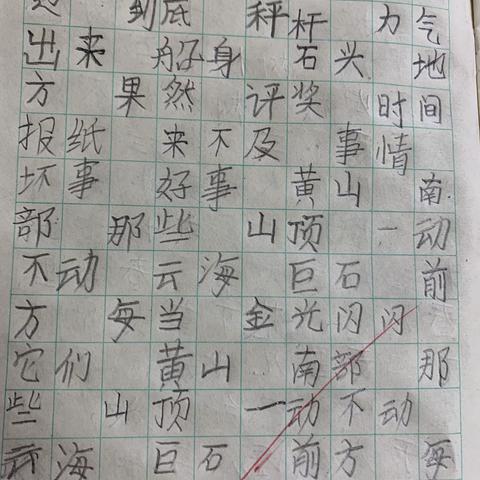 到底 秤杆 力气
出来 船身 石头 地
方 果然 评奖 时间
报纸 来不及 事情
坏事 好事 黄山 南
部 那些 山顶 一动
不动 云海 巨石 前
方 每当 金光闪闪
它们 黄山 南部 那
些 山顶 一动不动
云海 巨石 前方 每